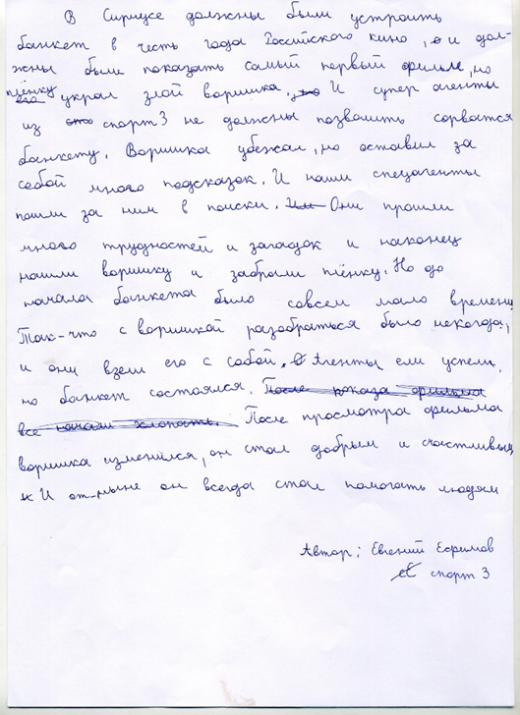 В Сириусе должны были устроить
банкет в честь года Российского кино, и дол-
жны были показать самый первый фильм, но
плёнку
его украл злой воришка, но И супер агенты
из это спорт 3 не должны позволить сорватся
банкету. Воришка убежал, но оставил за
собой много подсказок. И наши спецагенты
пошли за ним в поиски. Они прошли
много трудностей и загадок и наконец
нашли воришку и забрали плёнку. Но до
начала банкета было совсем мало времени
Так-что с воришкой разобраться было некогда,
и они взели его с собой. Агенты ели успели,
но банкет состоялся. После показа фильма
все начали хлопать. После просмотра фильма
воришка изменился, он стал добрым и счастливым
И от-ныне он всегда стал помогать людям
Автор: Евгений Ефримов
спорт 3